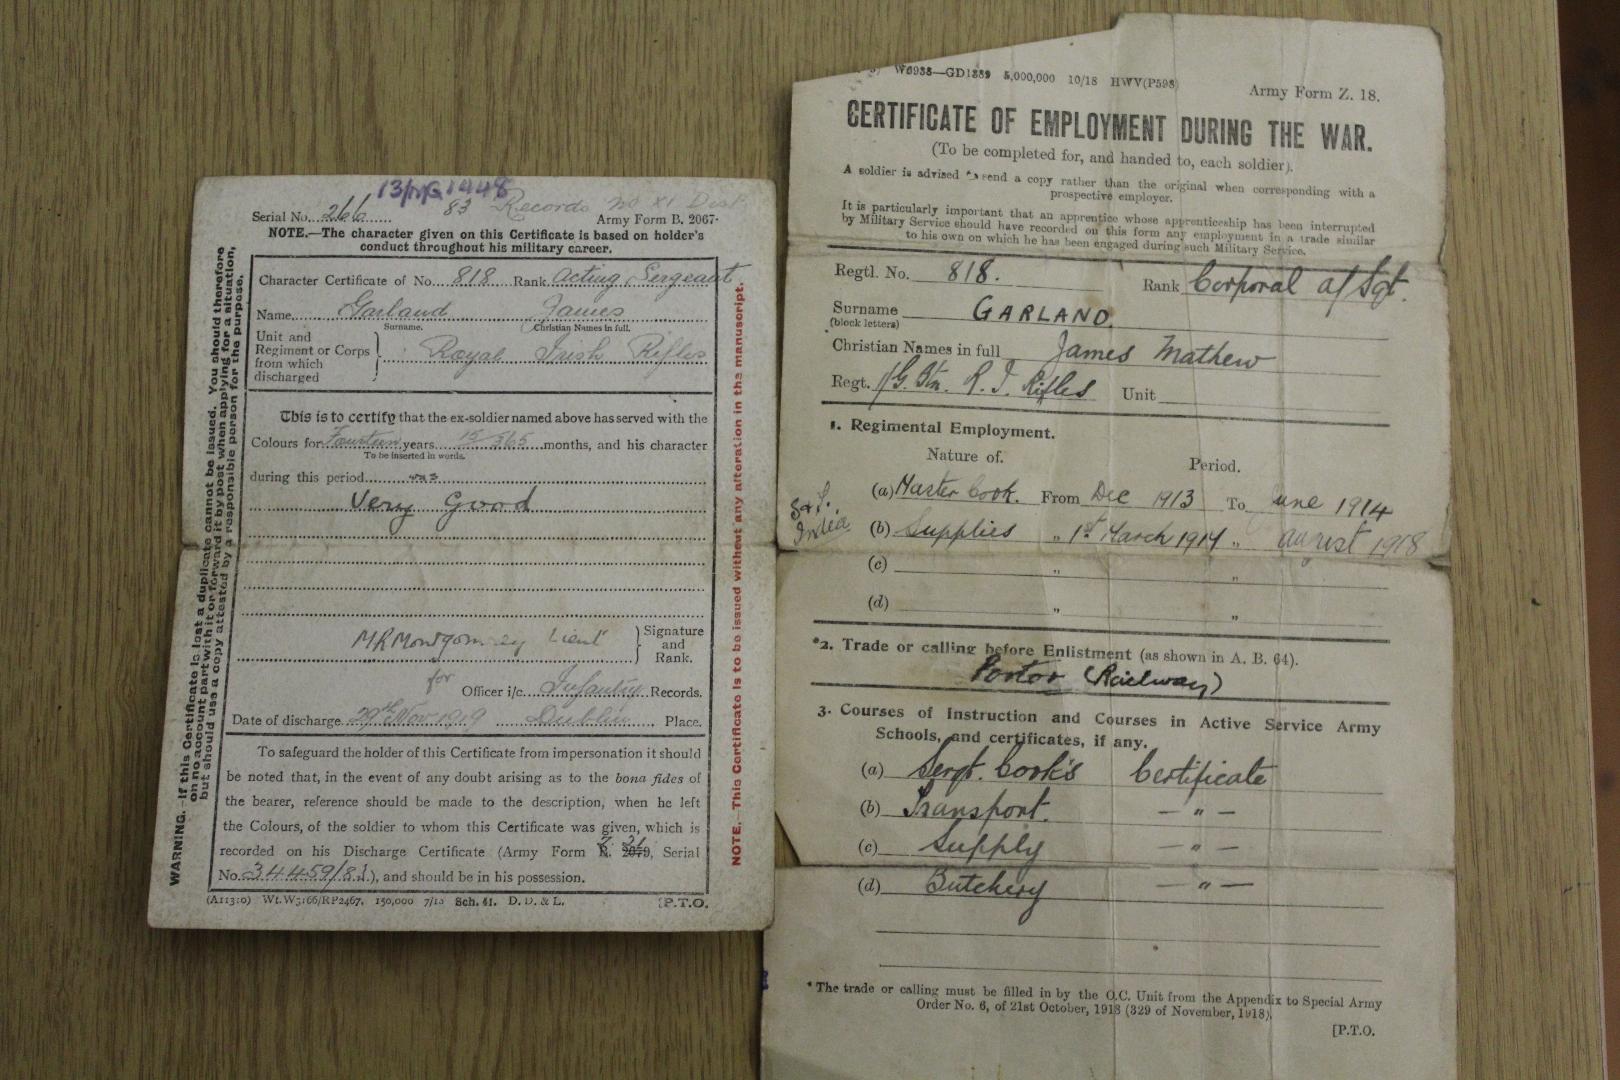 13/MG 1448
83 Records No XI Dist
Serial No. 266 Army Form B. 2067.
NOTE.—The character given on this Certificate is based on holder's
conduct throughout his military career.
Character Certificate of No. 818 Rank Acting Sergeant
Name Garland James
Surname. Christian Names in full.
Unit and
Regiment or Corps
from which
discharged
Royal Irish Rifles
This is to certify that the ex-soldier named above has served with the
Colours for Fourteen years 15/365 months, and his character
To be inserted in words.
during this period was
Very Good
MRMontgomrey Lieut
Signature
and
Rank.
for
Officer i/c Infantry Records.
Date of discharge 29th Nov 1919 Dublin Place.
To safeguard the holder of this Certificate from impersonation it should
be noted that, in the event of any doubt arising as to the bona fides of
the bearer, reference should be made to the description, when he left
the Colours, of the soldier to whom this Certificate was given, which is
recorded on his Discharge Certificate (Army Form Z. 21, Serial
No. 34459/83), and should be in his possession.
Wt.W3166/RP2467. 150,000 7/18 Sch. 41. D. D. & L. [P.T.O.
WARNING.—If this Certificate is lost a duplicate cannot be issued. You should therefore
on no account part with it or forward it by post when applying for a situation,
but should use a copy attested by a responsible person for the purpose.
NOTE.—This Certificate is to be issued without any alteration in the manuscript.
W6938—GD1889 5,000,000 10/18 HWV(P598)
Army Form Z. 18.
CERTIFICATE OF EMPLOYMENT DURING THE WAR.
(To be completed for, and handed to, each soldier).
A soldier is advised to send a copy rather than the original when corresponding with a
prospective employer.
It is particularly important that an apprentice whose apprenticeship has been interrupted
by Military Service should have recorded on this form any employment in a trade similar
to his own on which he has been engaged during such Military Service.
Regtl. No. 818. Rank Corporal a/Sgt.
Surname GARLAND.
(block letters)
Christian Names in full James Mathew
Regt. 1/G. Bn. R. I. Rifles Unit
1. Regimental Employment.
Nature of. Period.
(a) Master Cook. From Dec 1913 To June 1914
S & T.
India
(b) Supplies " 1st March 1917 " august 1918
(c) " "
(d) " "
*2. Trade or calling before Enlistment (as shown in A. B. 64).
Porter (Railway)
3. Courses of Instruction and Courses in Active Service Army
Schools, and certificates, if any.
(a) Sergt. Cook's Certificate
(b) Transport. — " —
(c) Supply — " —
(d) Butchery — " —
* The trade or calling must be filled in by the O.C. Unit from the Appendix to Special Army
Order No. 6, of 21st October, 1918 (329 of November, 1918).
[P.T.O.